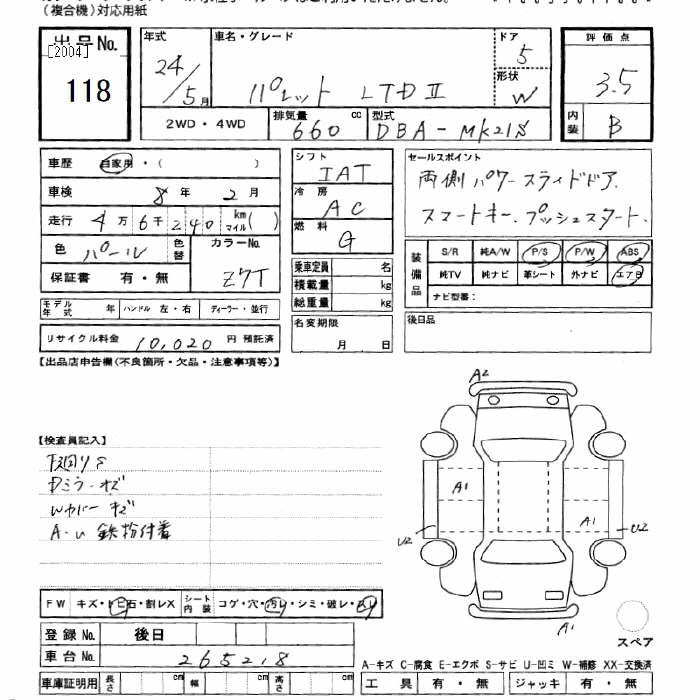 （複合機）対応用紙
出品No.
[2004]
118
年式
24/5月
車名・グレード
パレット LTDⅡ
ドア
5
形状
W
評価点
3.5
内装
B
2WD・4WD
排気量
660 cc
型式
DBA-MK21S
車歴 自家用・( )
車検 8年 2月
走行 4万6千240 km マイル( )
色 パール
色替
カラーNo.
Z7T
保証書 有・無
シフト
IAT
冷房
AC
燃料
G
乗車定員 名
積載量 kg
総重量 kg
セールスポイント
両側パワースライドドア.
スマートキー.プッシュスタート.
装備品
S/R 純A/W P/S P/W ABS
純TV 純ナビ 革シート 外ナビ エアB
ナビ型番:
モデル年式 年 ハンドル 左・右 ディーラー・並行
リサイクル料金 10,020 円 預託済
名変期限
月 日
後日品
【出品店申告欄(不良箇所・欠品・注意事項等)】
【検査員記入】
下回りS
Dミラーキズ
Wカバーキズ
A-U 鉄粉付着
A2
A1
A1
U2
U2
A1
スペア
FW キズ・トビ石・割レX
シート内装 コゲ・穴・汚レ・シミ・破レ・
登録No. 後日
車台No. 265218
車庫証明用 長さ cm 幅 cm 高さ cm
A-キズ C-腐食 E-エクボ S-サビ U-凹ミ W-補修 XX-交換済
工具 有・無 ジャッキ 有・無